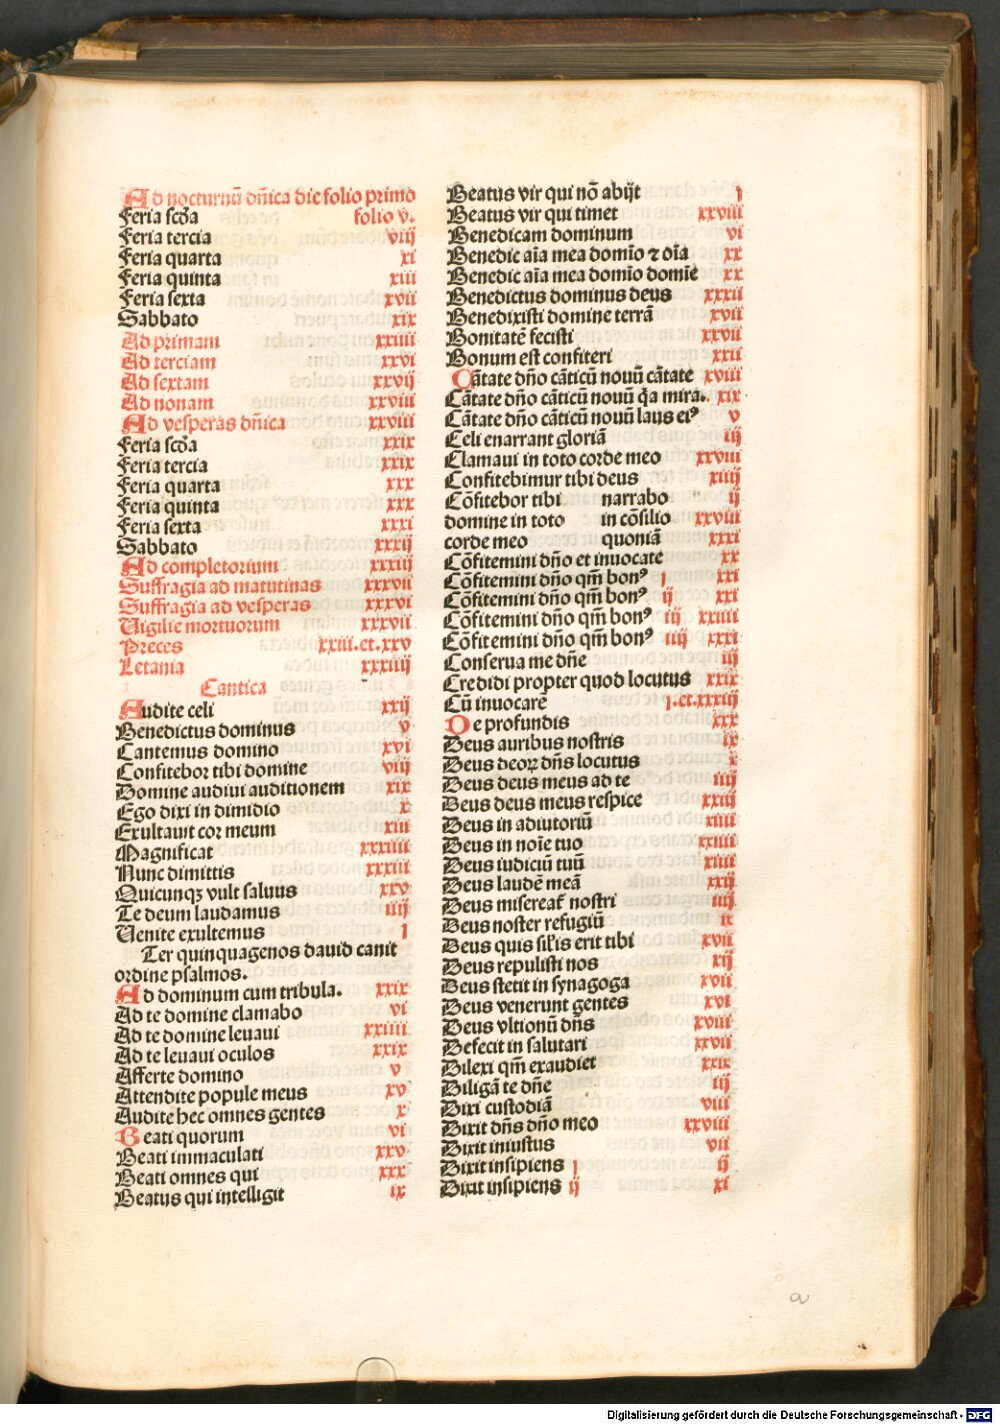 Ad nocturnū dn̄ica die folio primo
Feria scd̄a folio v.
Feria tercia viij
Feria quarta xi
Feria quinta xiii
Feria sexta xvii
Sabbato xix
Ad primam xxiiii
Ad terciam xxvi
Ad sextam xxvij
Ad nonam xxviii
Ad vesperas dn̄ica xxviii
Feria scd̄a xxix
Feria tercia xxix
Feria quarta xxx
Feria quinta xxx
Feria sexta xxxi
Sabbato xxxij
Ad completorium xxxiij
Suffragia ad matutinas xxxvii
Suffragia ad vesperas xxxvi
Uigilie mortuorum xxxvii
Preces xxiii.et.xxv
Letania xxxiiij
Cantica
Audite celi xxij
Benedictus dominus v
Cantemus domino xvi
Confitebor tibi domine viij
Domine audiui auditionem xix
Ego dixi in dimidio x
Exultauit cor meum xiii
Magnificat xxxiiii
Nunc dimittis xxxiii
Quicunqꝫ vult saluus xxv
Te deum laudamus iiij
Uenite exultemus i
Ter quinquagenos dauid canit
ordine psalmos.
Ad dominum cum tribula. xxix
Ad te domine clamabo vi
Ad te domine leuaui xxiiii
Ad te leuaui oculos xxix
Afferte domino v
Attendite popule meus xv
Audite hec omnes gentes x
Beati quorum vi
Beati immaculati xxv
Beati omnes qui xxx
Beatus qui intelligit ix
Beatus vir qui nō abijt i
Beatus vir qui timet xxviii
Benedicam dominum vi
Benedic aīa mea domīo ⁊ oīa xx
Benedic aīa mea domīo domīe xx
Benedictus dominus deus xxxii
Benedixisti domine terrā xvii
Bonitatē fecisti xxvii
Bonum est confiteri xxii
Cātate dn̄o cāticū nouū cātate xviii
Cātate dn̄o cāticū nouū q̄a mira. xix
Cātate dn̄o cāticū nouū laus eiꝰ v
Celi enarrant gloriā iij
Clamaui in toto corde meo xxviii
Confitebimur tibi deus xiiij
Cōfitebor tibi narrabo ij
domine in toto in cōsilio xxviii
corde meo quoniā xxxi
Cōfitemini dn̄o et inuocate xx
Cōfitemini dn̄o qm̄ bonꝰ i xxi
Cōfitemini dn̄o qm̄ bonꝰ ij xxi
Cōfitemini dn̄o qm̄ bonꝰ iij xxiiii
Cōfitemini dn̄o qm̄ bonꝰ iiij xxxi
Conserua me dn̄e iij
Credidi propter quod locutus xxix
Cū inuocarē i.et.xxxiij
De profundis xxx
Deus auribus nostris ix
Deus deoꝝ dn̄s locutus x
Deus deus meus ad te iiij
Deus deus meus respice xxiij
Deus in adiutoriū xiiii
Deus in noīe tuo xxiiii
Deus iudiciū tuū xiiii
Deus laudē meā xxij
Deus misereat̄ nostri iiij
Deus noster refugiū ix
Deus quis sil'is erit tibi xvii
Deus repulisti nos xij
Deus stetit in synagoga xvii
Deus venerunt gentes xvi
Deus vltionū dn̄s xviii
Defecit in salutari xxvii
Dilexi qm̄ exaudiet xxix
Diligā te dn̄e iij
Dixi custodiā viii
Dixit dn̄s dn̄o meo xxviii
Dixit iniustus vii
Dixit insipiens i ij
Dixit insipiens ij xi
a
Digitalisierung gefördert durch die Deutsche Forschungsgemeinschaft - DFG